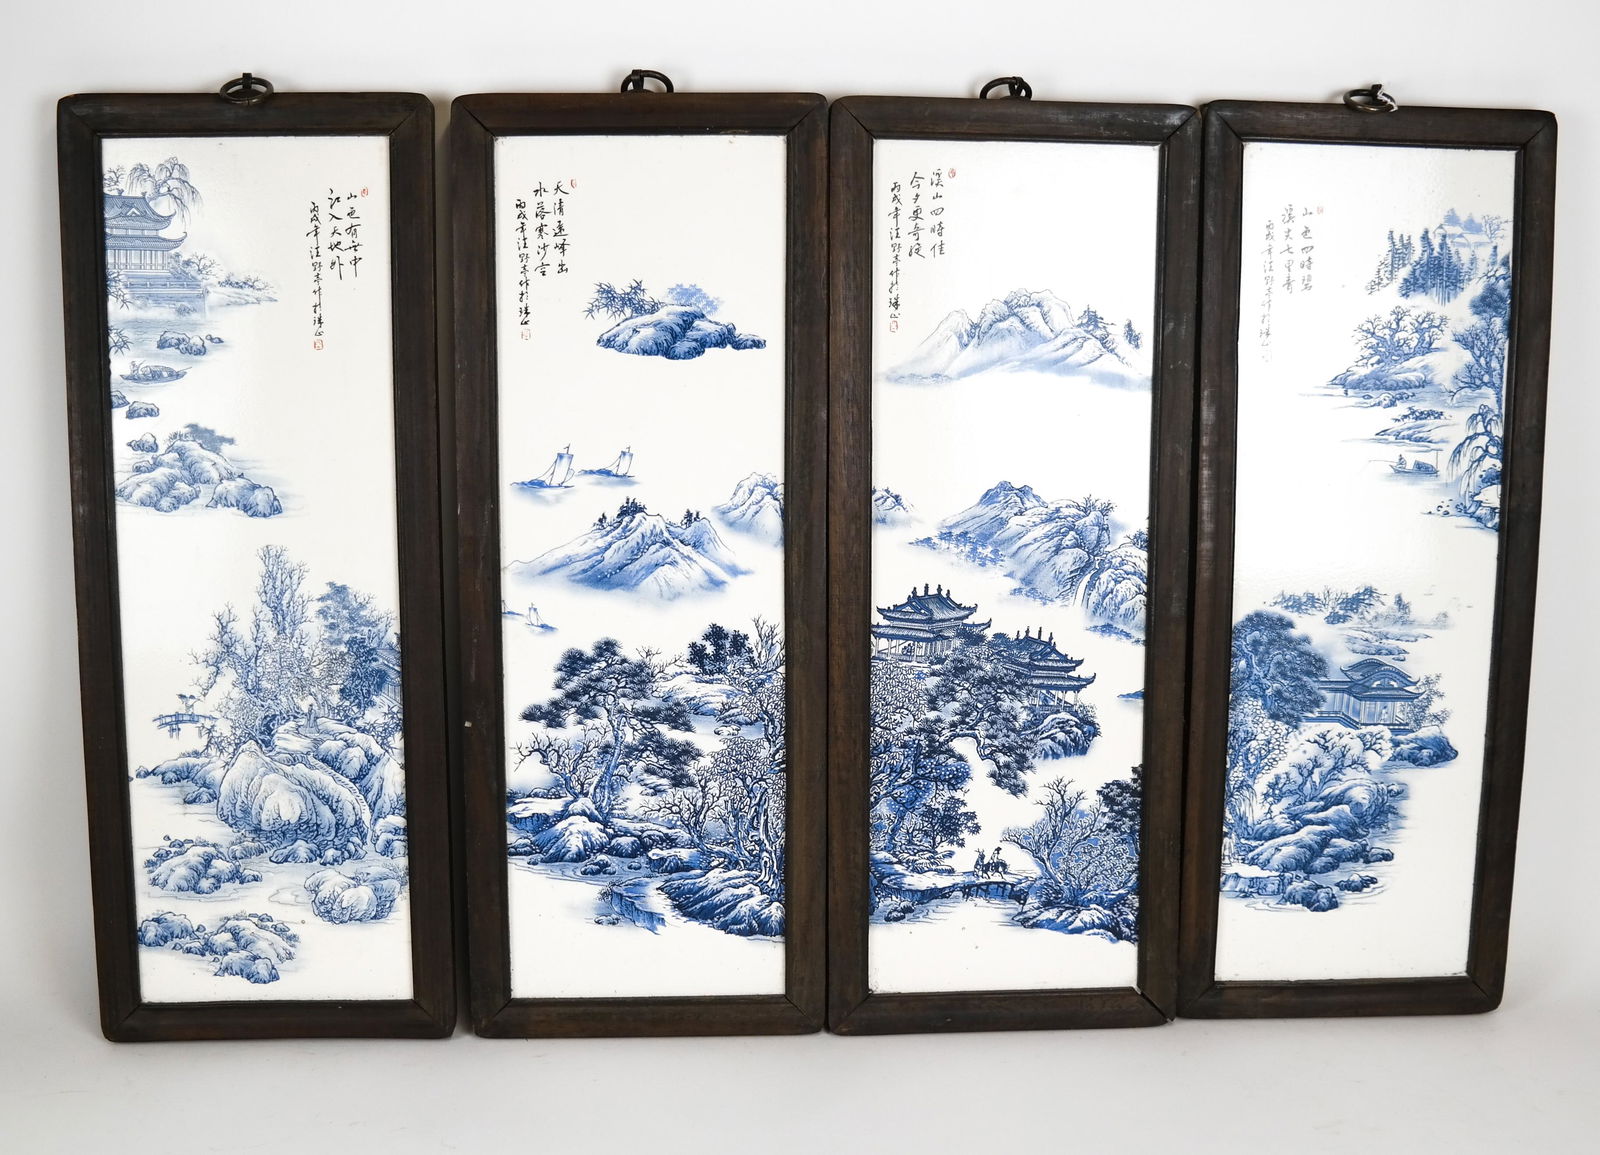 山色有无中
江入天地外
丙戌年汪野亭作於珠山
天清遠峰出
水落寒沙空
丙戌年汪野亭作於珠山
溪山四時佳
今夕更奇絶
丙戌年汪野亭作於珠山
山色四時碧
溪光七里青
丙戌年汪野亭作於珠山